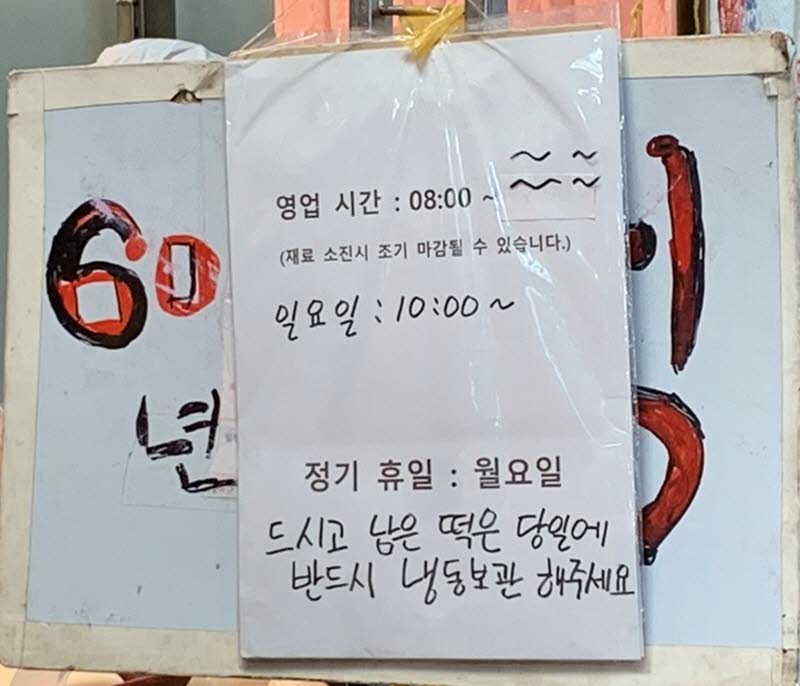 영업 시간 : 08:00 ~
(재료 소진시 조기 마감될 수 있습니다.)
일요일 : 10:00 ~
정기 휴일 : 월요일
드시고 남은 떡은 당일에
반드시 냉동보관 해주세요
60
년